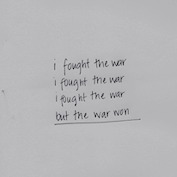 i fought the war
i fought the war
i fought the war
but the war won